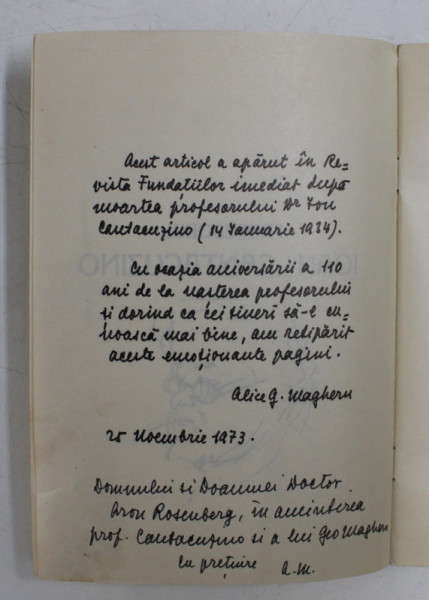 Acest articol a apărut în Re=
vista Fundațiilor imediat după
moartea profesorului Dr Ion
Cantacuzino (14 Ianuarie 1934).
Cu ocazia aniversării a 110
ani de la nașterea profesorului
și dorind ca cei tineri să-l cu=
noască mai bine, am retipărit
aceste emoționante pagini.
Alice G. Magheru
25 Noembrie 1973.
Domnului si Doamnei Doctor
Aron Rosenberg, în amintirea
prof. Cantacuzino si a lui Geo Magheru
cu prețuire A.M.